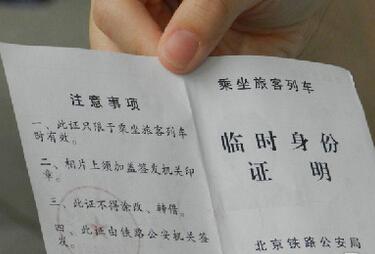 注意事项
一、此证只限于乘坐旅客列车
时有效。
二、相片上须加盖签发机关印
章。
三、此证不得涂改、转借。
四、此证由铁路公安机关签
发。
乘坐旅客列车
临时身份
证明
北京铁路公安局